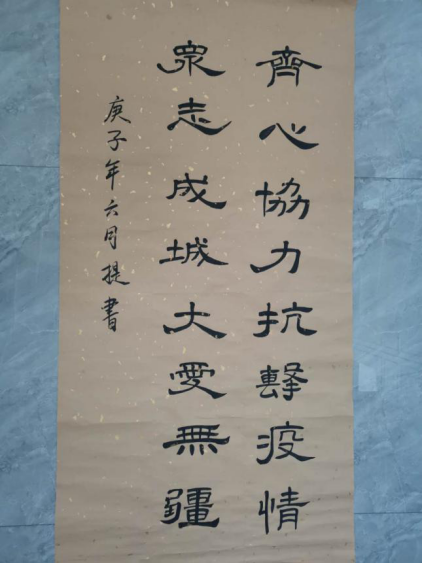 齊心協力抗擊疫情
衆志成城大愛無疆
庚子年六月提書